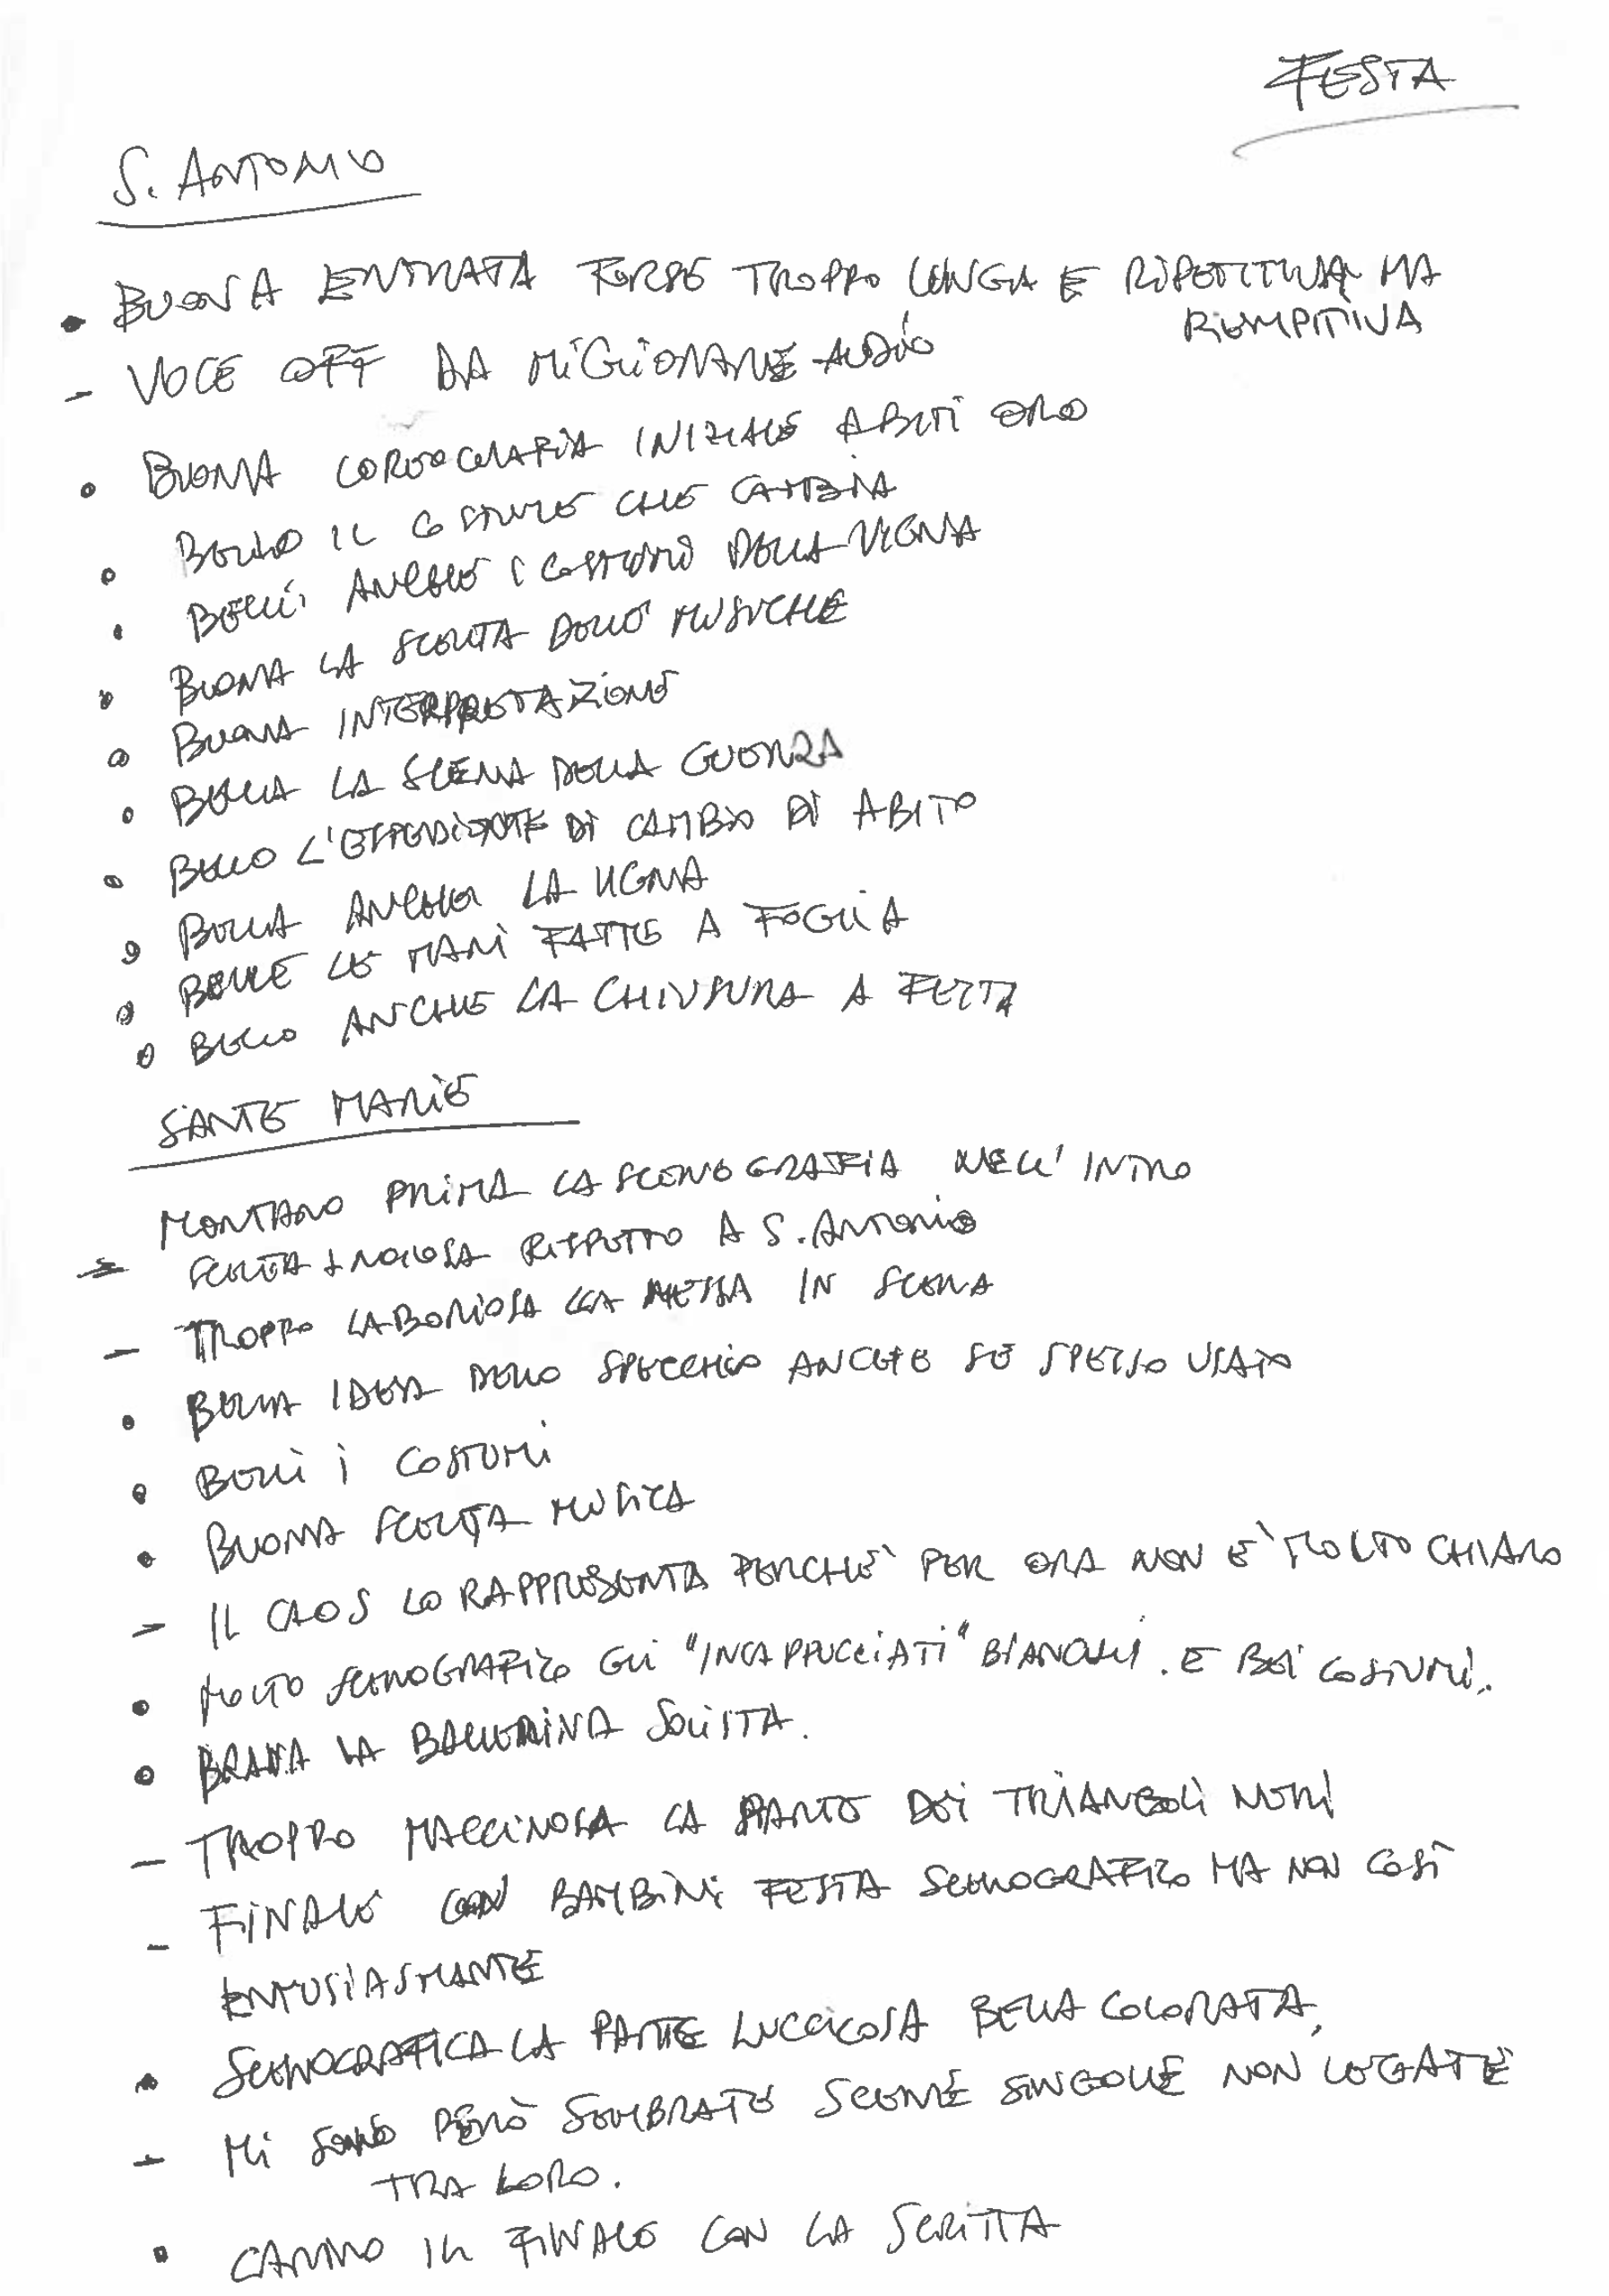 FESTA
S. ANTONIO
• BUONA ENTRATA FORSE TROPPO LUNGA E RIPETITIVA MA
RIEMPITIVA
- VOCE OFF DA MIGLIORARE AUDIO
• BUONA COREOGRAFIA INIZIALE ABITI ORO
• BELLO IL COSTUME CHE CAMBIA
• BELLI ANCHE I COSTUMI DELLA VIGNA
• BUONA LA SCELTA DELLE MUSICHE
• BUONA INTERPRETAZIONE
• BELLA LA SCENA DELLA GUERRA
• BELLO L'ESPEDIENTE DI CAMBIO DI ABITO
• BELLA ANCHE LA VIGNA
• BELLE LE MANI FATTE A FOGLIA
• BELLO ANCHE LA CHIUSURA A FESTA
SANTE MARIE
- MONTANO PRIMA LA SCENOGRAFIA NELL'INTRO
SCELTA + NOIOSA RISPETTO A S. ANTONIO
- TROPPO LABORIOSA LA MESSA IN SCENA
• BELLA IDEA DELLO SPECCHIO ANCHE SE SPESSO USATO
• BELLI I COSTUMI
• BUONA SCELTA MUSICA
- IL CAOS LO RAPPRESENTA PERCHÈ PER ORA NON E' MOLTO CHIARO
• MOLTO SCENOGRAFICO GLI "INCAPPUCCIATI" BIANCHI. E BEI COSTUMI.
• BRAVA LA BALLERINA SOLISTA.
- TROPPO MACCINOSA LA PARTE DEI TRIANGOLI NERI
- FINALE CON BAMBINI FESTA SCENOGRAFICO MA NON COSÌ
ENTUSIASMANTE
• SCENOGRAFICA LA PARTE LUCCICOSA BELLA COLORATA,
- MI SONO PERÒ SEMBRATE SCENE SINGOLE NON LEGATE
TRA LORO.
• CARINO IL FINALE CON LA SCRITTA